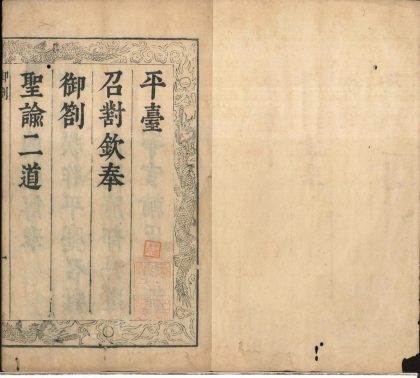 平臺
召對欽奉
御劄
聖諭二道
御劄